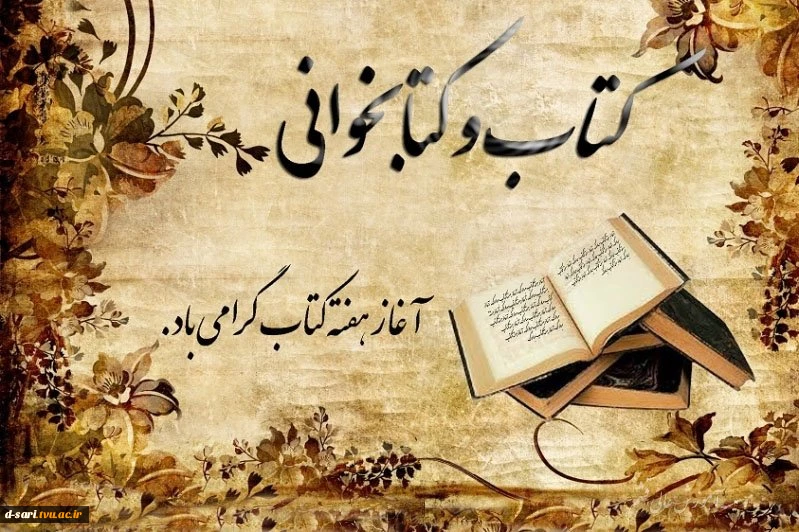 کتاب و کتابخوانی
آغاز هفته کتاب گرامی باد.
d-sari.tvu.ac.ir